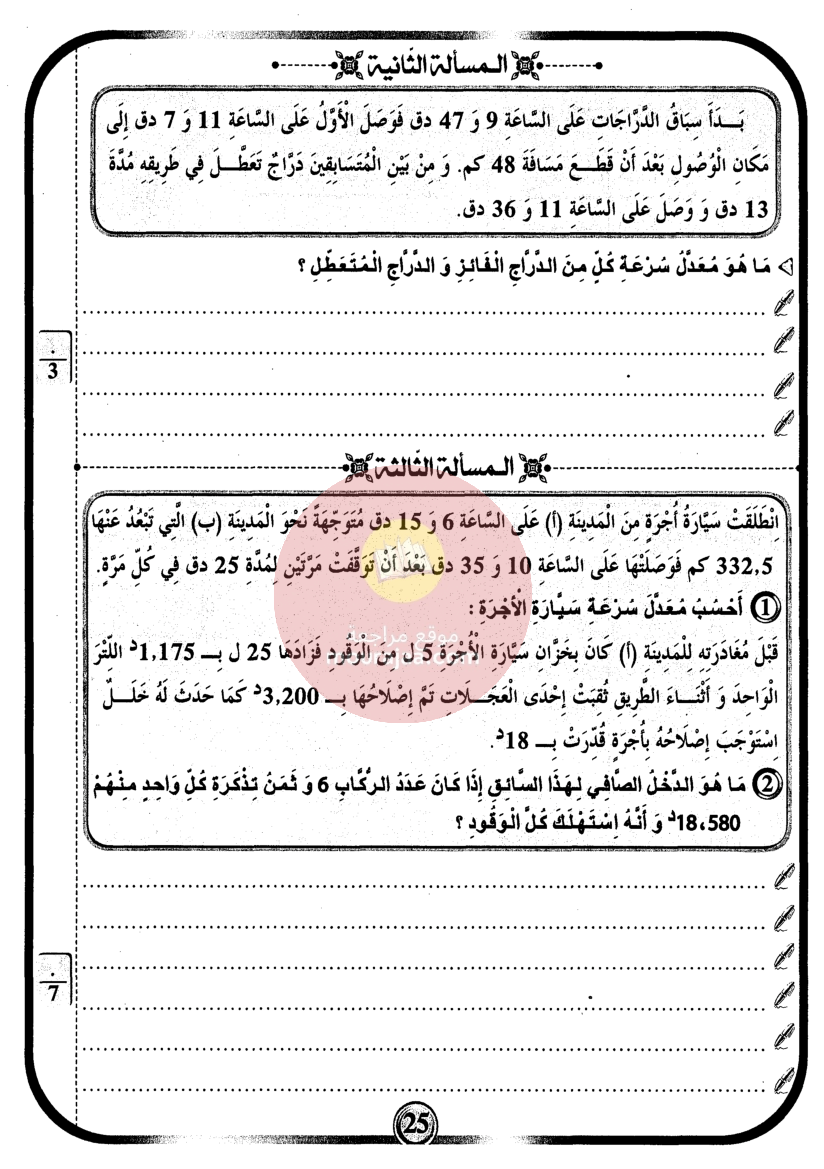 المسألة الثّانية
بَــدَأَ سِبَاقُ الدَّرَّاجَات عَلَى السَّاعَةِ 9 وَ 47 دق فَوَصَلَ الْأَوَّلُ عَلَى السَّاعَةِ 11 وَ 7 دق إِلَى
مَكَانِ الْوُصُولِ بَعْدَ أَنْ قَطَــعَ مَسَافَةَ 48 كم. وَ مِنْ بَيْنِ الْمُتَسَابِقِينَ دَرَّاجٌ تَعَطَّــلَ فِي طَرِيقِهِ مُدَّةَ
13 دق وَ وَصَلَ عَلَى السَّاعَةِ 11 وَ 36 دق.
مَا هُوَ مُعَدَّلُ سُرْعَةِ كُلٍّ مِنَ الدَّرَّاجِ الْفَائِزِ وَ الدَّرَّاجِ الْمُتَعَطِّلِ ؟
.
3
المسألة الثّالثة
اِنْطَلَقَتْ سَيَّارَةُ أُجْرَةٍ مِنَ الْمَدِينَةِ (أ) عَلَى السَّاعَةِ 6 وَ 15 دق مُتَوَجِّهَةً نَحْوَ الْمَدِينَةِ (ب) الَّتِي تَبْعُدُ عَنْهَا
332,5 كم فَوَصَلَتْهَا عَلَى السَّاعَةِ 10 وَ 35 دق بَعْدَ أَنْ تَوَقَّفَتْ مَرَّتَيْنِ لِمُدَّةِ 25 دق فِي كُلِّ مَرَّةٍ.
1 أَحْسُبُ مُعَدَّلَ سُرْعَةِ سَيَّارَةِ الْأُجْرَةِ :
موقع مراجعة
قَبْلَ مُغَادَرَتِهِ لِلْمَدِينَةِ (أ) كَانَ بِخَزَّانِ سَيَّارَةِ الْأُجْرَةِ 5 ل مِنَ الْوَقُودِ فَزَادَهَا 25 ل بِــ 1,175د اللّتْرَ
الْوَاحِدَ وَ أَثْنَــاءَ الطَّرِيقِ ثُقِبَتْ إِحْدَى الْعَجَــلَاتِ تَمَّ إِصْلَاحُهَا بِــ 3,200د كَمَا حَدَثَ لَهُ خَلَــلٌ
اِسْتَوْجَبَ إِصْلَاحُهُ بِأُجْرَةٍ قُدِّرَتْ بِــ 18د.
2 مَا هُوَ الدَّخْلُ الصَّافِي لِهَذَا السَّائِقِ إِذَا كَانَ عَدَدُ الرُّكَّابِ 6 وَ ثَمَنُ تَذْكَرَةِ كُلِّ وَاحِدٍ مِنْهُمْ
18,580د وَ أَنَّهُ اِسْتَهْلَكَ كُلَّ الْوَقُودِ ؟
.
7
25